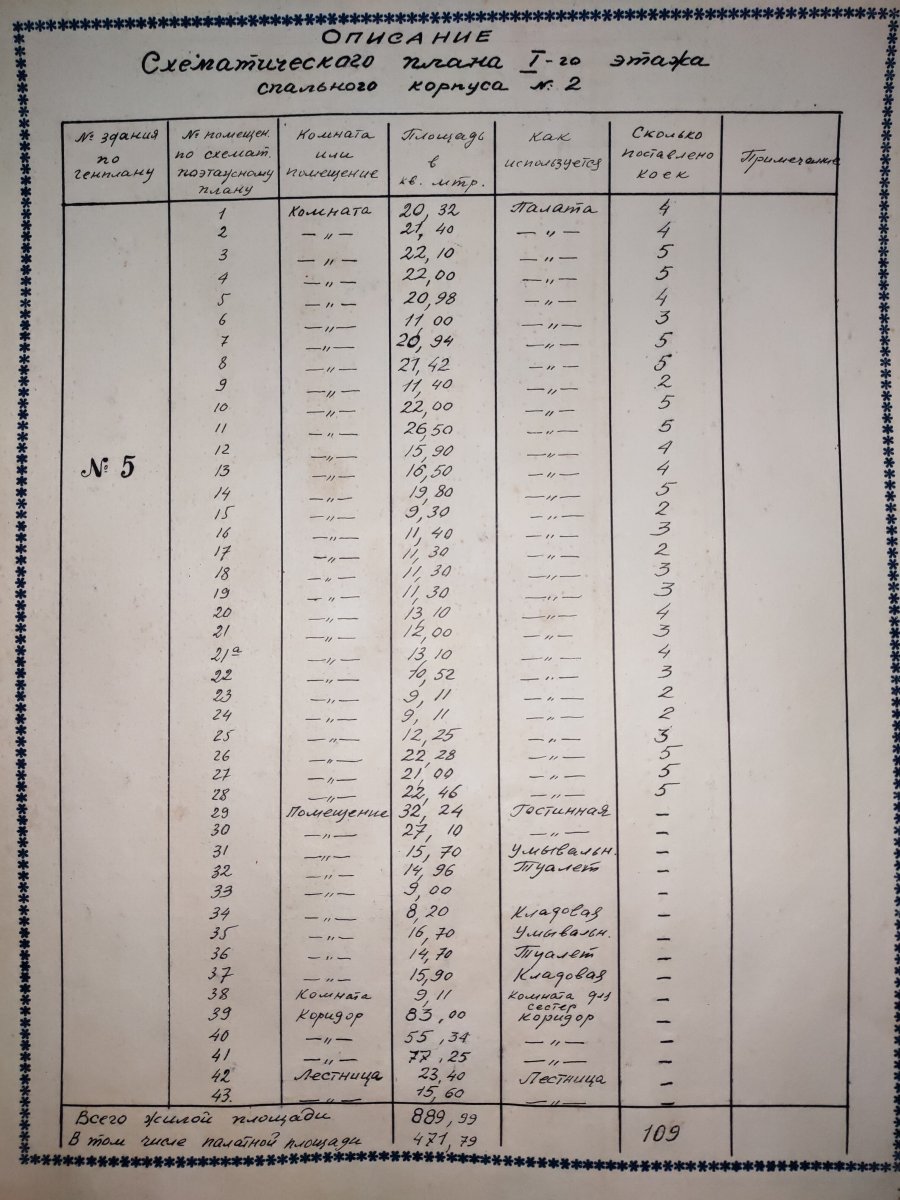 Описание
Схематического плана I-го этажа
спального корпуса № 2
№ здания по генплану | № помещен. по схемат. поэтажному плану | Комната или помещение | Площадь в кв. мтр. | Как используется | Сколько поставлено коек | Примечание
№ 5
1 Комната 20,32 Палата 4
2 —„— 21,40 —„— 4
3 —„— 22,10 —„— 5
4 —„— 22,00 —„— 5
5 —„— 20,98 —„— 4
6 —„— 11,00 —„— 3
7 —„— 20,94 —„— 5
8 —„— 21,42 —„— 5
9 —„— 11,40 —„— 2
10 —„— 22,00 —„— 5
11 —„— 26,50 —„— 5
12 —„— 15,90 —„— 4
13 —„— 16,50 —„— 4
14 —„— 19,80 —„— 5
15 —„— 9,30 —„— 2
16 —„— 11,40 —„— 3
17 —„— 11,30 —„— 2
18 —„— 11,30 —„— 3
19 —„— 11,30 —„— 3
20 —„— 13,10 —„— 4
21 —„— 12,00 —„— 3
21а —„— 13,10 —„— 4
22 —„— 10,52 —„— 3
23 —„— 9,11 —„— 2
24 —„— 9,11 —„— 2
25 —„— 12,25 —„— 3
26 —„— 22,28 —„— 5
27 —„— 21,00 —„— 5
28 —„— 22,46 —„— 5
29 Помещение 32,24 Гостинная –
30 —„— 27,10 —„— –
31 —„— 15,70 Умывальн. –
32 —„— 14,96 Туалет –
33 —„— 9,00 –
34 —„— 8,20 Кладовая –
35 —„— 16,70 Умывальн. –
36 —„— 14,70 Туалет –
37 —„— 15,90 Кладовая –
38 Комната 9,11 Комната для сестер –
39 Коридор 83,00 Коридор –
40 —„— 55,34 —„— –
41 —„— 77,25 —„— –
42 Лестница 23,40 Лестница –
43. —„— 15,60 —„— –
Всего жилой площади 889,99
В том числе палатной площади 471,79 109